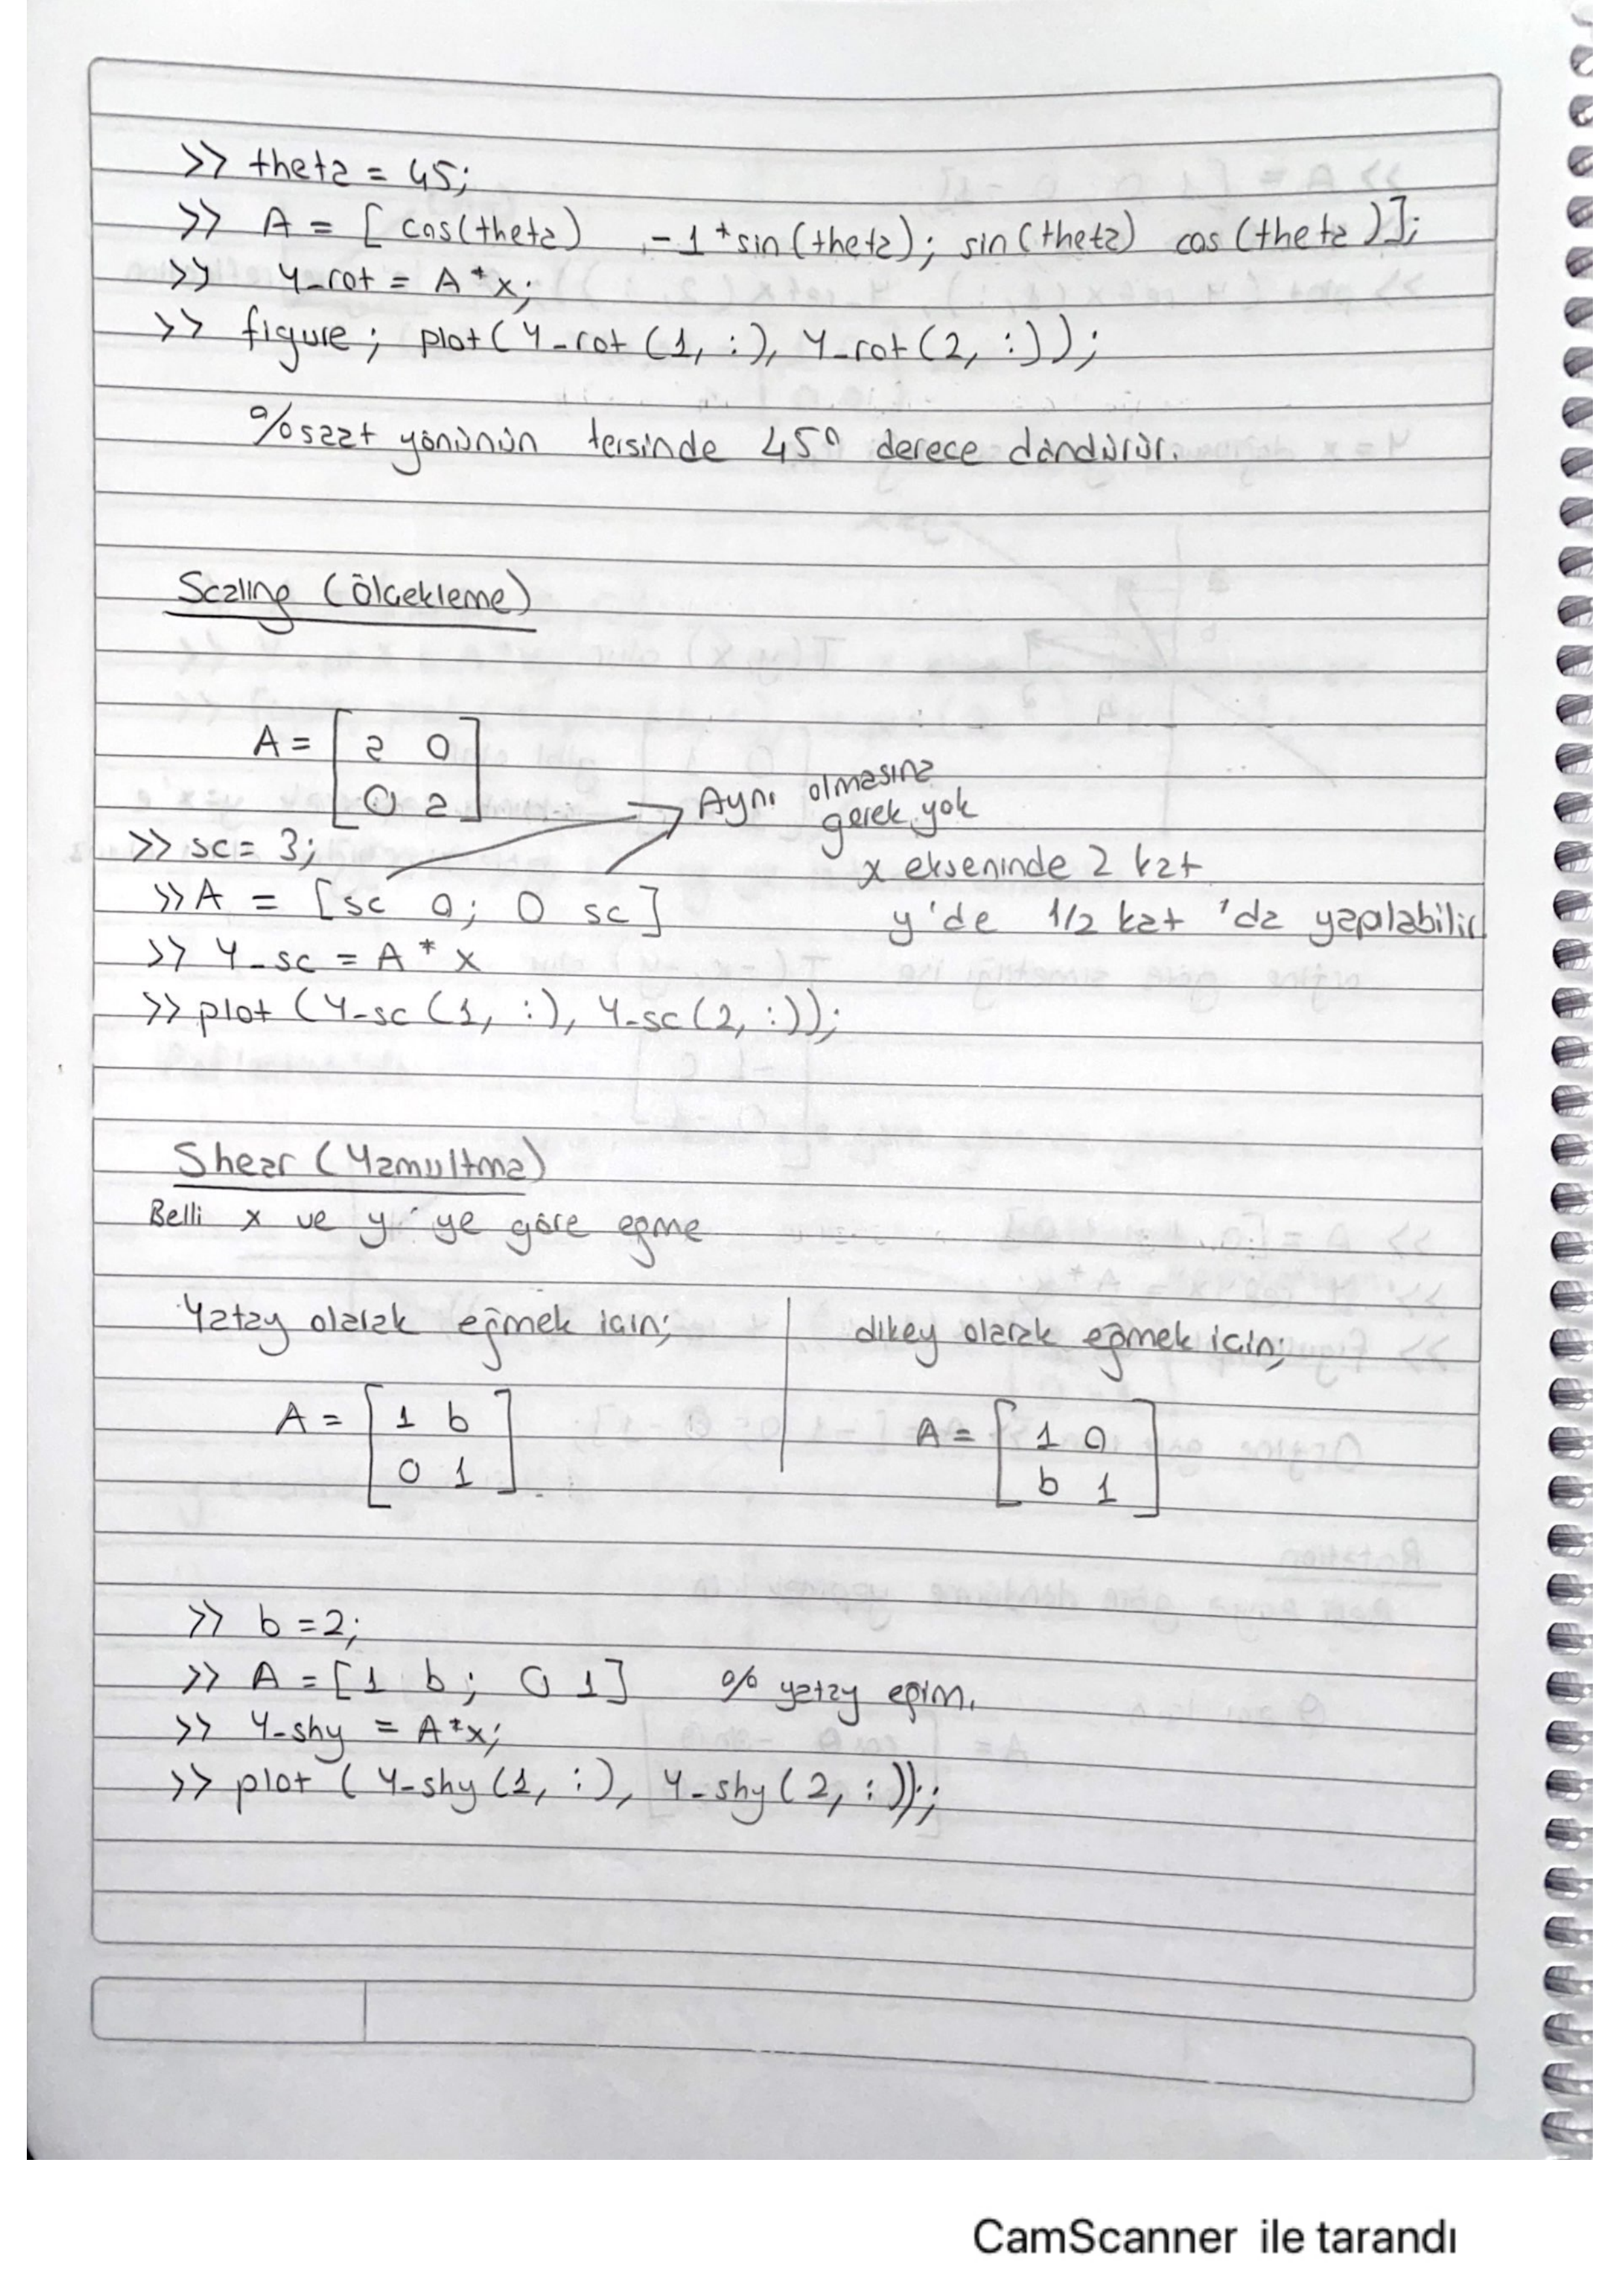 >> theta = 45;
>> A = [ cos(theta) -1*sin(theta); sin(theta) cos(theta)];
>> y_rot = A*x;
>> figure; plot(y_rot(1, :), y_rot(2, :));
% saat yönünün tersinde 45° derece döndürür.
Scaling (Ölçekleme)
A = [ a 0
0 a ]
Aynı olmasına
gerek yok
>> sc = 3;
x ekseninde 2 kat
>> A = [sc 0; 0 sc]
y'de 1/2 kat 'da yapılabilir
>> y_sc = A * x
>> plot (y_sc (1, :), y_sc (2, :));
Shear (Yamultma)
Belli x ve y'ye göre eğme
Yatay olarak eğmek için;
A = [ 1 b
0 1 ]
dikey olarak eğmek için;
A = [ 1 0
b 1 ]
>> b = 2;
>> A = [1 b; 0 1] % yatay eğim.
>> y_shy = A*x;
>> plot ( y_shy (1, :), y_shy (2, :));;
CamScanner ile tarandı